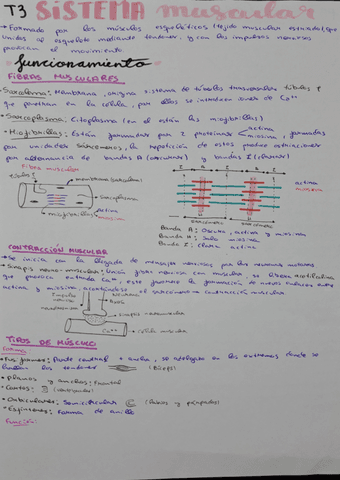 T3 SISTEMA muscular
→ Formado por los músculos esqueléticos (tejido muscular estriado) que
unidos al esqueleto mediante tendones, y con los impulsos nerviosos
provocan el movimiento.
funcionamiento
FIBRAS MUSCULARES
• Sarcolema: Membrana, origina sistema de túbulos transversales túbulos t
que penetran en la célula, por ellos se introducen iones de Ca²⁺
• Sarcoplasma: Citoplasma (en él están las miofibrillas)
• Miofibrillas: Están formadas por 2 proteínas actina
miosina, formadas
por unidades sarcómeros, la repetición de estos produce estriaciones
por alternancia de bandas A (oscuras) y bandas I (claras)
Fibra muscular
túbulo t
membrana (sarcolema)
sarcoplasma
miofibrillas
actina
miosina
I A I A I
actina
miosina
sarcómero
Banda A: Oscura, actina y miosina
Banda H: Solo miosina
Banda I: Clara, actina
CONTRACCIÓN MUSCULAR
• Se inicia con la llegada de mensajes nerviosos por las neuronas motoras
• Sinapsis neuro-muscular: Unión
que provoca entrada Ca²⁺, esto permite la formación de nuevos enlaces entre
actina y miosina, acortándose el sarcómero = contracción muscular
Impulso
nervioso
Neurona
Axón
sinapsis
Ca²⁺
célula muscular
TIPOS DE MÚSCULO
Forma:
• Fusiformes: Parte central + ancha, se adelgaza en los extremos donde se
hallan los tendones
(Bíceps)
• Planos y anchos: Frontal
• Cortos:
• Orbiculares: Semicircular (labios y párpados)
• Esfínteres: Forma de anillo
Función: